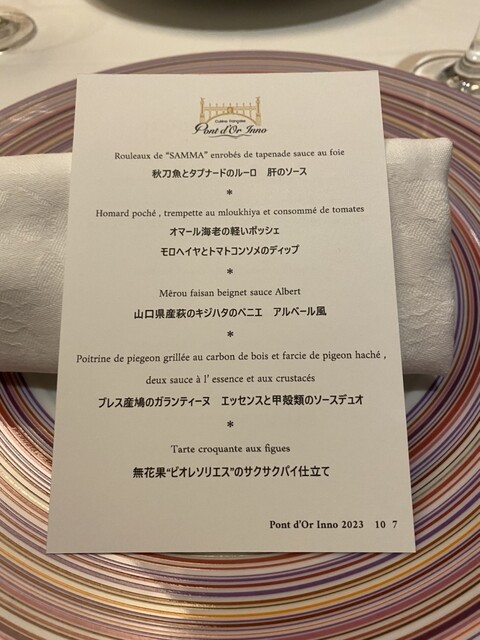 Cuisine française
Pont d'Or Inno
Rouleaux de "SAMMA" enrobés de tapenade sauce au foie
秋刀魚とタプナードのルーロ　肝のソース
*
Homard poché , trempette au mloukhiya et consommé de tomates
オマール海老の軽いポッシェ
モロヘイヤとトマトコンソメのディップ
*
Mérou faisan beignet sauce Albert
山口県産萩のキジハタのベニエ　アルベール風
*
Poitrine de piegeon grillée au carbon de bois et farcie de pigeon haché ,
deux sauce à l' essence et aux crustacés
ブレス産鳩のガランティーヌ　エッセンスと甲殻類のソースデュオ
*
Tarte croquante aux figues
無花果"ビオレソリエス"のサクサクパイ仕立て
Pont d'Or Inno 2023 10 7